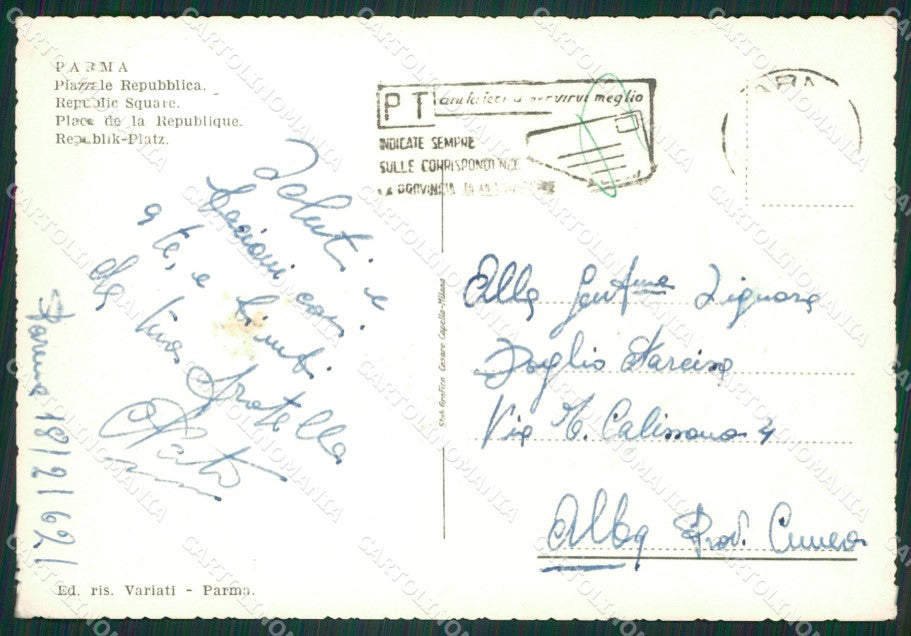 PARMA
Piazzale Repubblica.
Republic Square.
Place de la Republique.
Republik-Platz.
PT aiutateci a servirvi meglio
INDICATE SEMPRE
SULLE CORRISPONDENZE
LA PROVINCIA DI DESTINAZIONE
Saluti e
bacioni cari
a te, e bimbi
da tuo fratello
Parma 18/2/62
Alla Gent.ma Signora
Narcisa
Via M. Calissano 4
Alba Prov. Cuneo
Stab. Grafico Cesare Capello-Milano
Ed. ris. Variati - Parma.
CARTOLINOMANIA